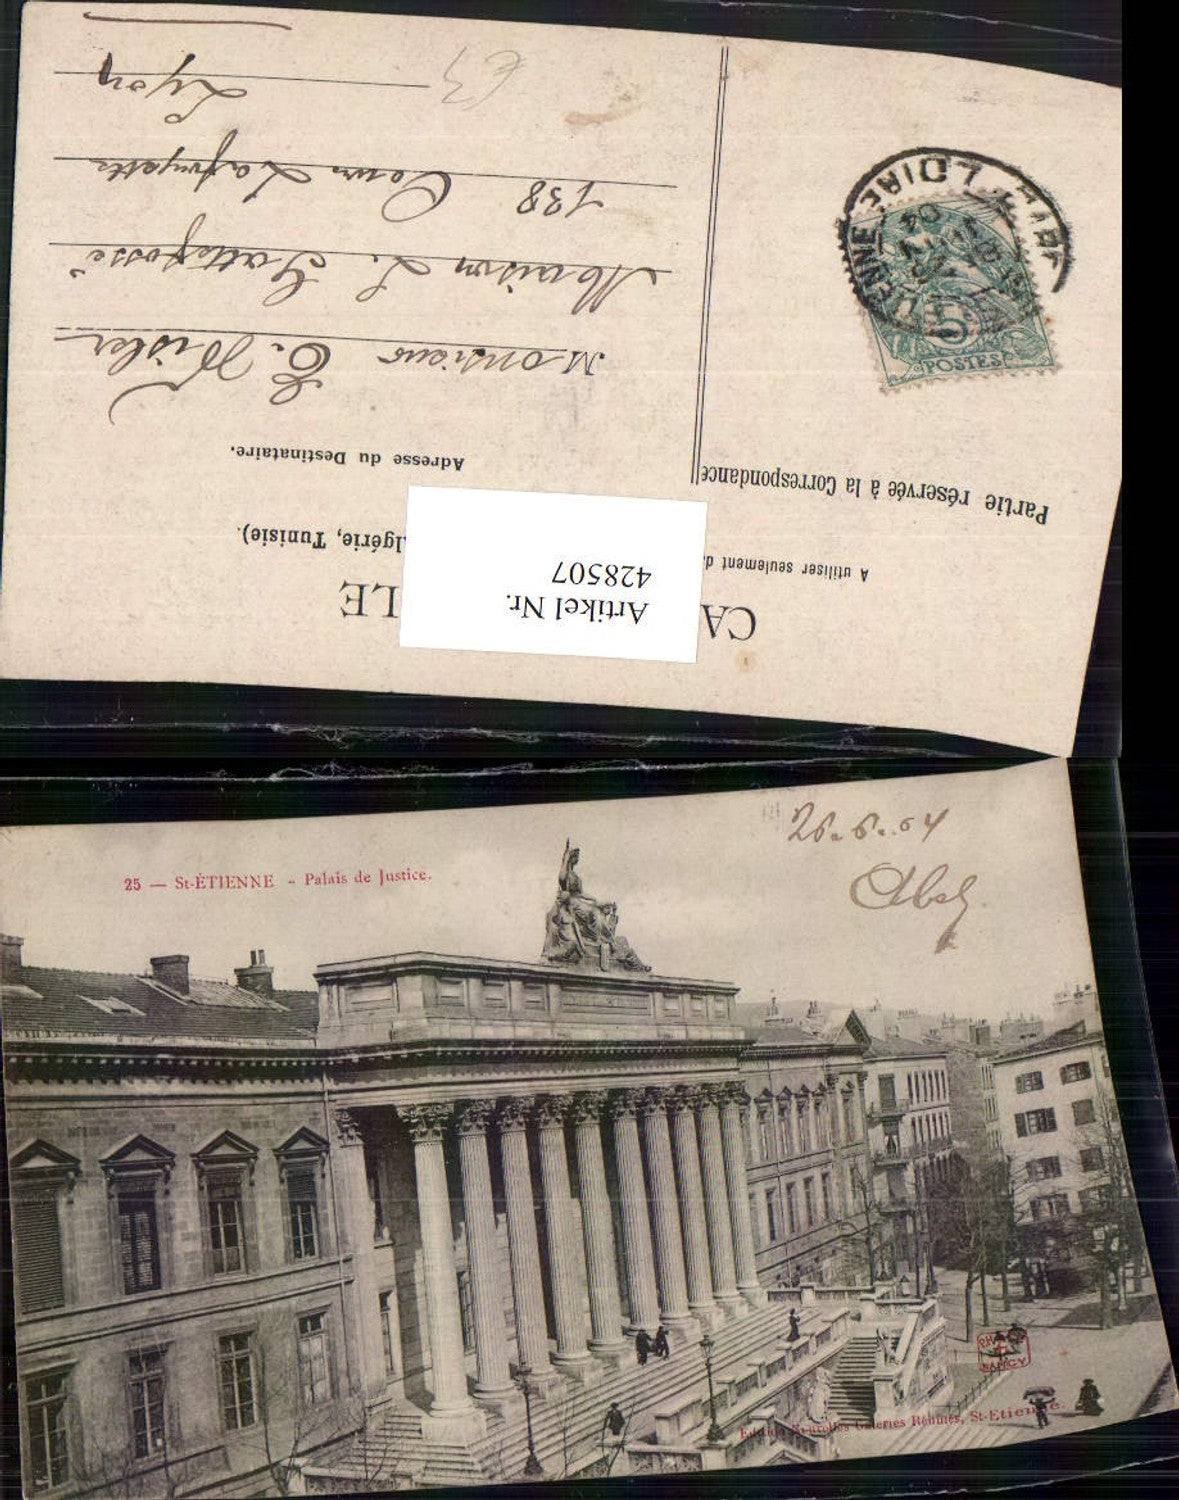 CA
LE
A utiliser seulement d
lgérie, Tunisie).
Artikel Nr.
428507
Partie réservée à la Correspondance
Adresse du Destinataire.
Monsieur E.
Maison L. Gattefossé
138 Cours Lafayette
Lyon
5
POSTES
LOIRE
04
25 — St-ÉTIENNE - Palais de Justice.
26.6.04
NANCY
Edition Nouvelles Galeries Réunies, St-Etienne.